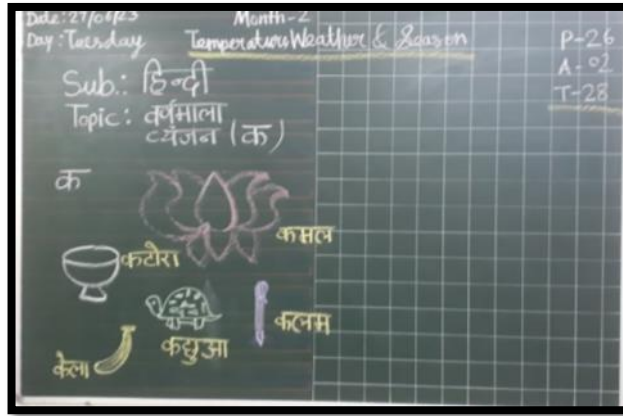 Date: 27/06/23
Month-2
Day: Tuesday
Temperature Weather & Season
P-26
A-02
T-28
Sub.: हिन्दी
Topic: वर्णमाला
व्यंजन (क)
क
कमल
कटोरा
कछुआ
कलम
केला